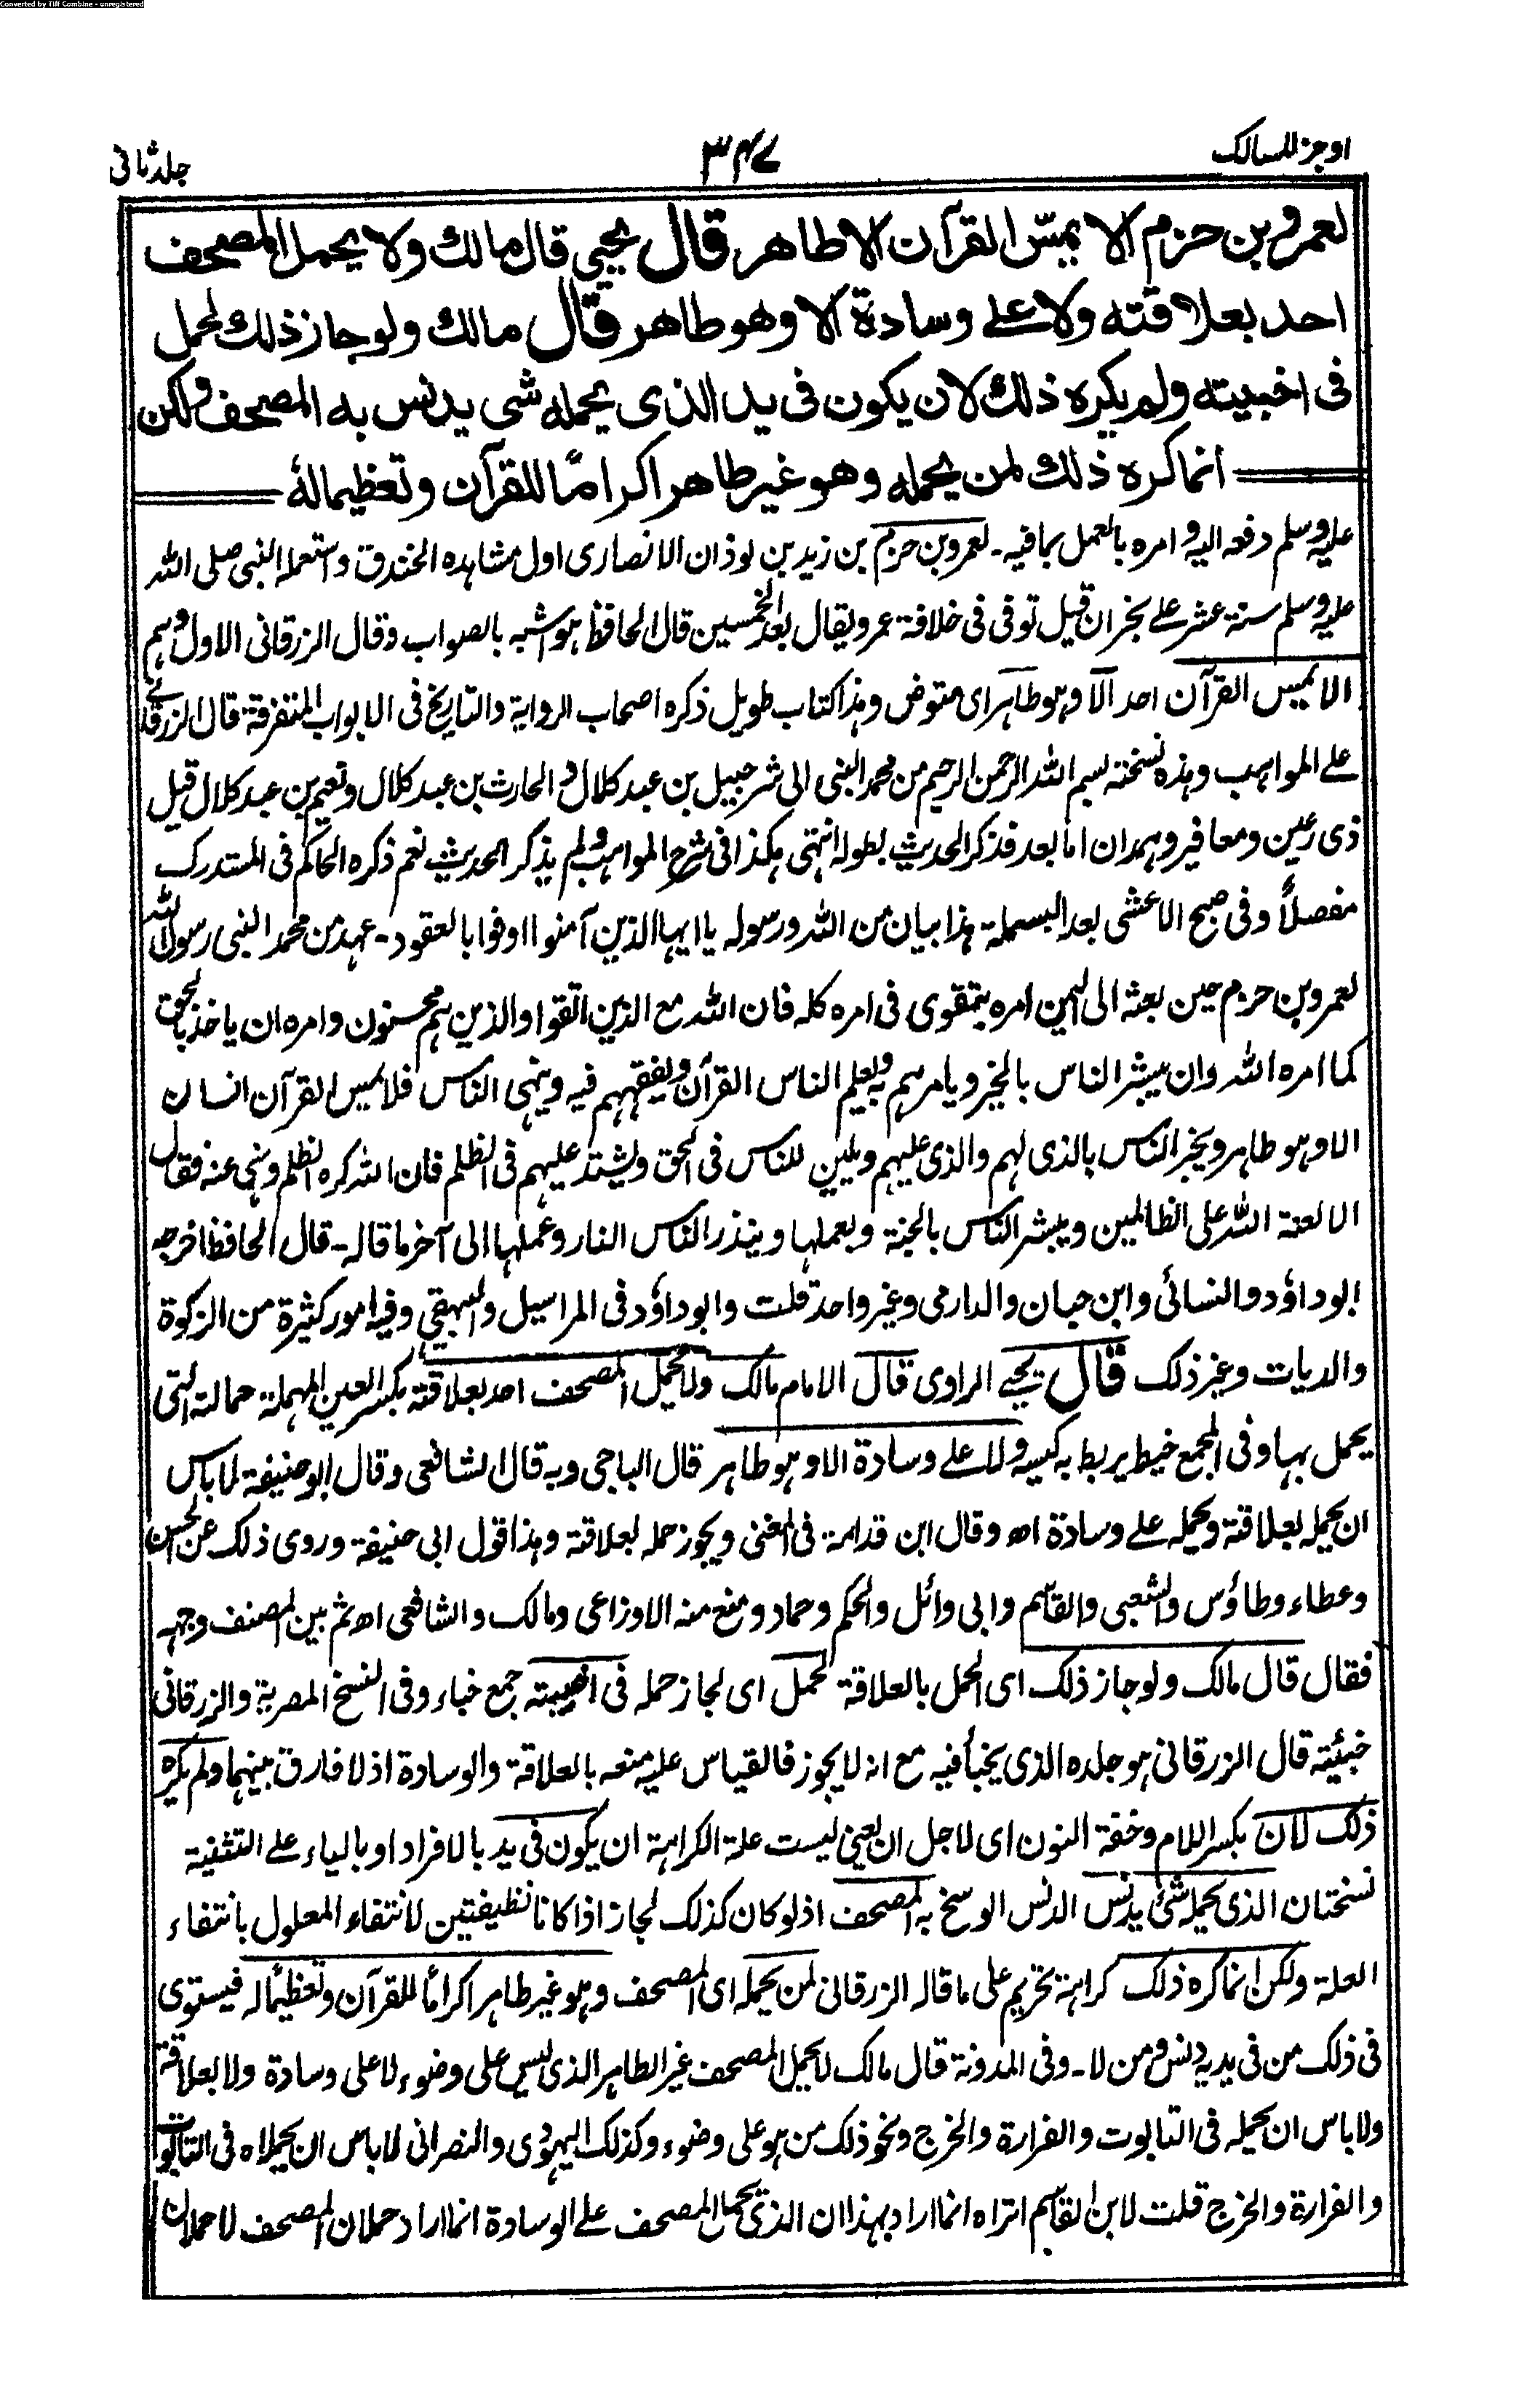 Converted by Tiff Combine - unregistered
اوجز المسالک
۳۴۷
جلد ثانی
لعمرو بن حزم الا يمسّ القرآن الا طاهر قال يحيى قال مالك ولا يحمل المصحف
احد بعلاقته ولا على وسادة الا وهو طاهر قال مالك ولو جاز ذلك لحمل
فى اخبيته ولم يكره ذلك لان يكون فى يد الذى يحمله شى يدنس به المصحف ولكن
انما كره ذلك لمن يحمله وهو غير طاهر اكراما للقرآن وتعظيما له
عليه وسلم دفعه اليه وامره بالعمل بما فيه ـ لعمرو بن حزم بن زيد بن لوذان الانصارى اول مشاهده الخندق واستعمله النبى صلى الله
عليه وسلم سنة عشر على نجران قيل توفى فى خلافة عمر ويقال بعد الخمسين قال الحافظ هو اشبه بالصواب وقال الزرقانى الاول وهم
الا يمس القرآن احد الا وهو طاهر اى متوض وهذا كتاب طويل ذكره اصحاب الرواية والتاريخ فى الابواب المتفرقة قال الزرقانى
على المواهب وهذه نسخته بسم الله الرحمن الرحيم من محمد النبى الى شرحبيل بن عبد كلال والحارث بن عبد كلال ونعيم بن عبد كلال قيل
ذى رعين ومعافير وهمدان اما بعد فذكر الحديث بطوله انتهى هكذا فى شرح المواهب ولم يذكر الحديث نعم ذكره الحاكم فى المستدرك
مفصلاً وفى صبح الاعشى بعد البسملة هذا بيان من الله ورسوله يا ايها الذين آمنوا اوفوا بالعقود ـ عهد من محمد النبى رسول الله
لعمرو بن حزم حين بعثه الى اليمن امره بتقوى فى امره كله فان الله مع الذين اتقوا والذين هم محسنون وامره ان ياخذ بالحق
كما امره الله وان يبشر الناس بالخير ويامرهم به ويعلم الناس القرآن ويفقههم فيه وينهى الناس فلا يمس القرآن انسان
الا وهو طاهر ويخبر الناس بالذى لهم والذى عليهم ويلين للناس فى الحق ويشتد عليهم فى الظلم فان الله كره الظلم ونهى عنه فقال
الا لعنة الله على الظالمين ويبشر الناس بالجنة وبعملها وينذر الناس النار وعملها الى آخر ما قاله ـ قال الحافظ اخرجه
ابو داؤد والنسائى وابن حبان والدارمى وغير واحد قلت وابو داؤد فى المراسيل والبيهقى وفيه امور كثيرة من الزكوة
والديات وغير ذلك قال يحيى الراوى قال الامام مالك ولا يحمل المصحف احد بعلاقته بكسر العين المهملة حمالته التى
يحمل بها وفى المجمع خيط يربط به كيسه ولا على وسادة الا وهو طاهر قال الباجى وبه قال الشافعى وقال ابو حنيفة لا باس
ان يحمله بعلاقته ويحمله على وسادة اھ وقال ابن قدامة فى المغنى ويجوز حمله بعلاقته وهذا قول ابى حنيفة وروى ذلك عن الحسن
وعطاء وطاؤس والشعبى والقاسم وابى وائل والحكم وحماد ومنع منه الاوزاعى ومالك والشافعى اھ ثم بين المصنف وجهه
فقال قال مالك ولو جاز ذلك اى الحمل بالعلاقة لحمل اى لجاز حمله فى اخبيته جمع خباء وفى النسخ المصرية والزرقانى
خبيئته قال الزرقانى هو جلده الذى يخبأ فيه مع انه لا يجوز فالقياس عليه منعه بالعلاقة والوسادة اذ لا فارق بينهما ولم يكره
ذلك لان بكسر اللام وخفة النون اى لاجل ان يعنى ليست علة الكراهة ان يكون فى يد بالافراد او بالياء على التثنية
نسختان الذى يحمله شئ يدنس الدنس الوسخ به المصحف اذ لو كان كذلك لجاز اذا كانا نظيفتين لانتفاء المعلول بانتفاء
العلة ولكن انما كره ذلك كراهة تحريم على ما قاله الزرقانى لمن يحمله اى المصحف وهو غير طاهر اكراماً للقرآن وتعظيماً له فيستوى
فى ذلك من فى يديه دنس ومن لا ـ وفى المدونة قال مالك لا يحمل المصحف غير الطاهر الذى ليس على وضوء لا على وسادة ولا بعلاقة
ولا باس ان يحمله فى التابوت والغرارة والخرج ونحو ذلك من هو على وضوء وكذلك اليهودى والنصرانى لا باس ان يحملاه فى التابوت
والغرارة والخرج قلت لابن القاسم اتراه انما اراد بهذا ان الذى يحمل المصحف على الوسادة انما اراد حملان المصحف لا حملان